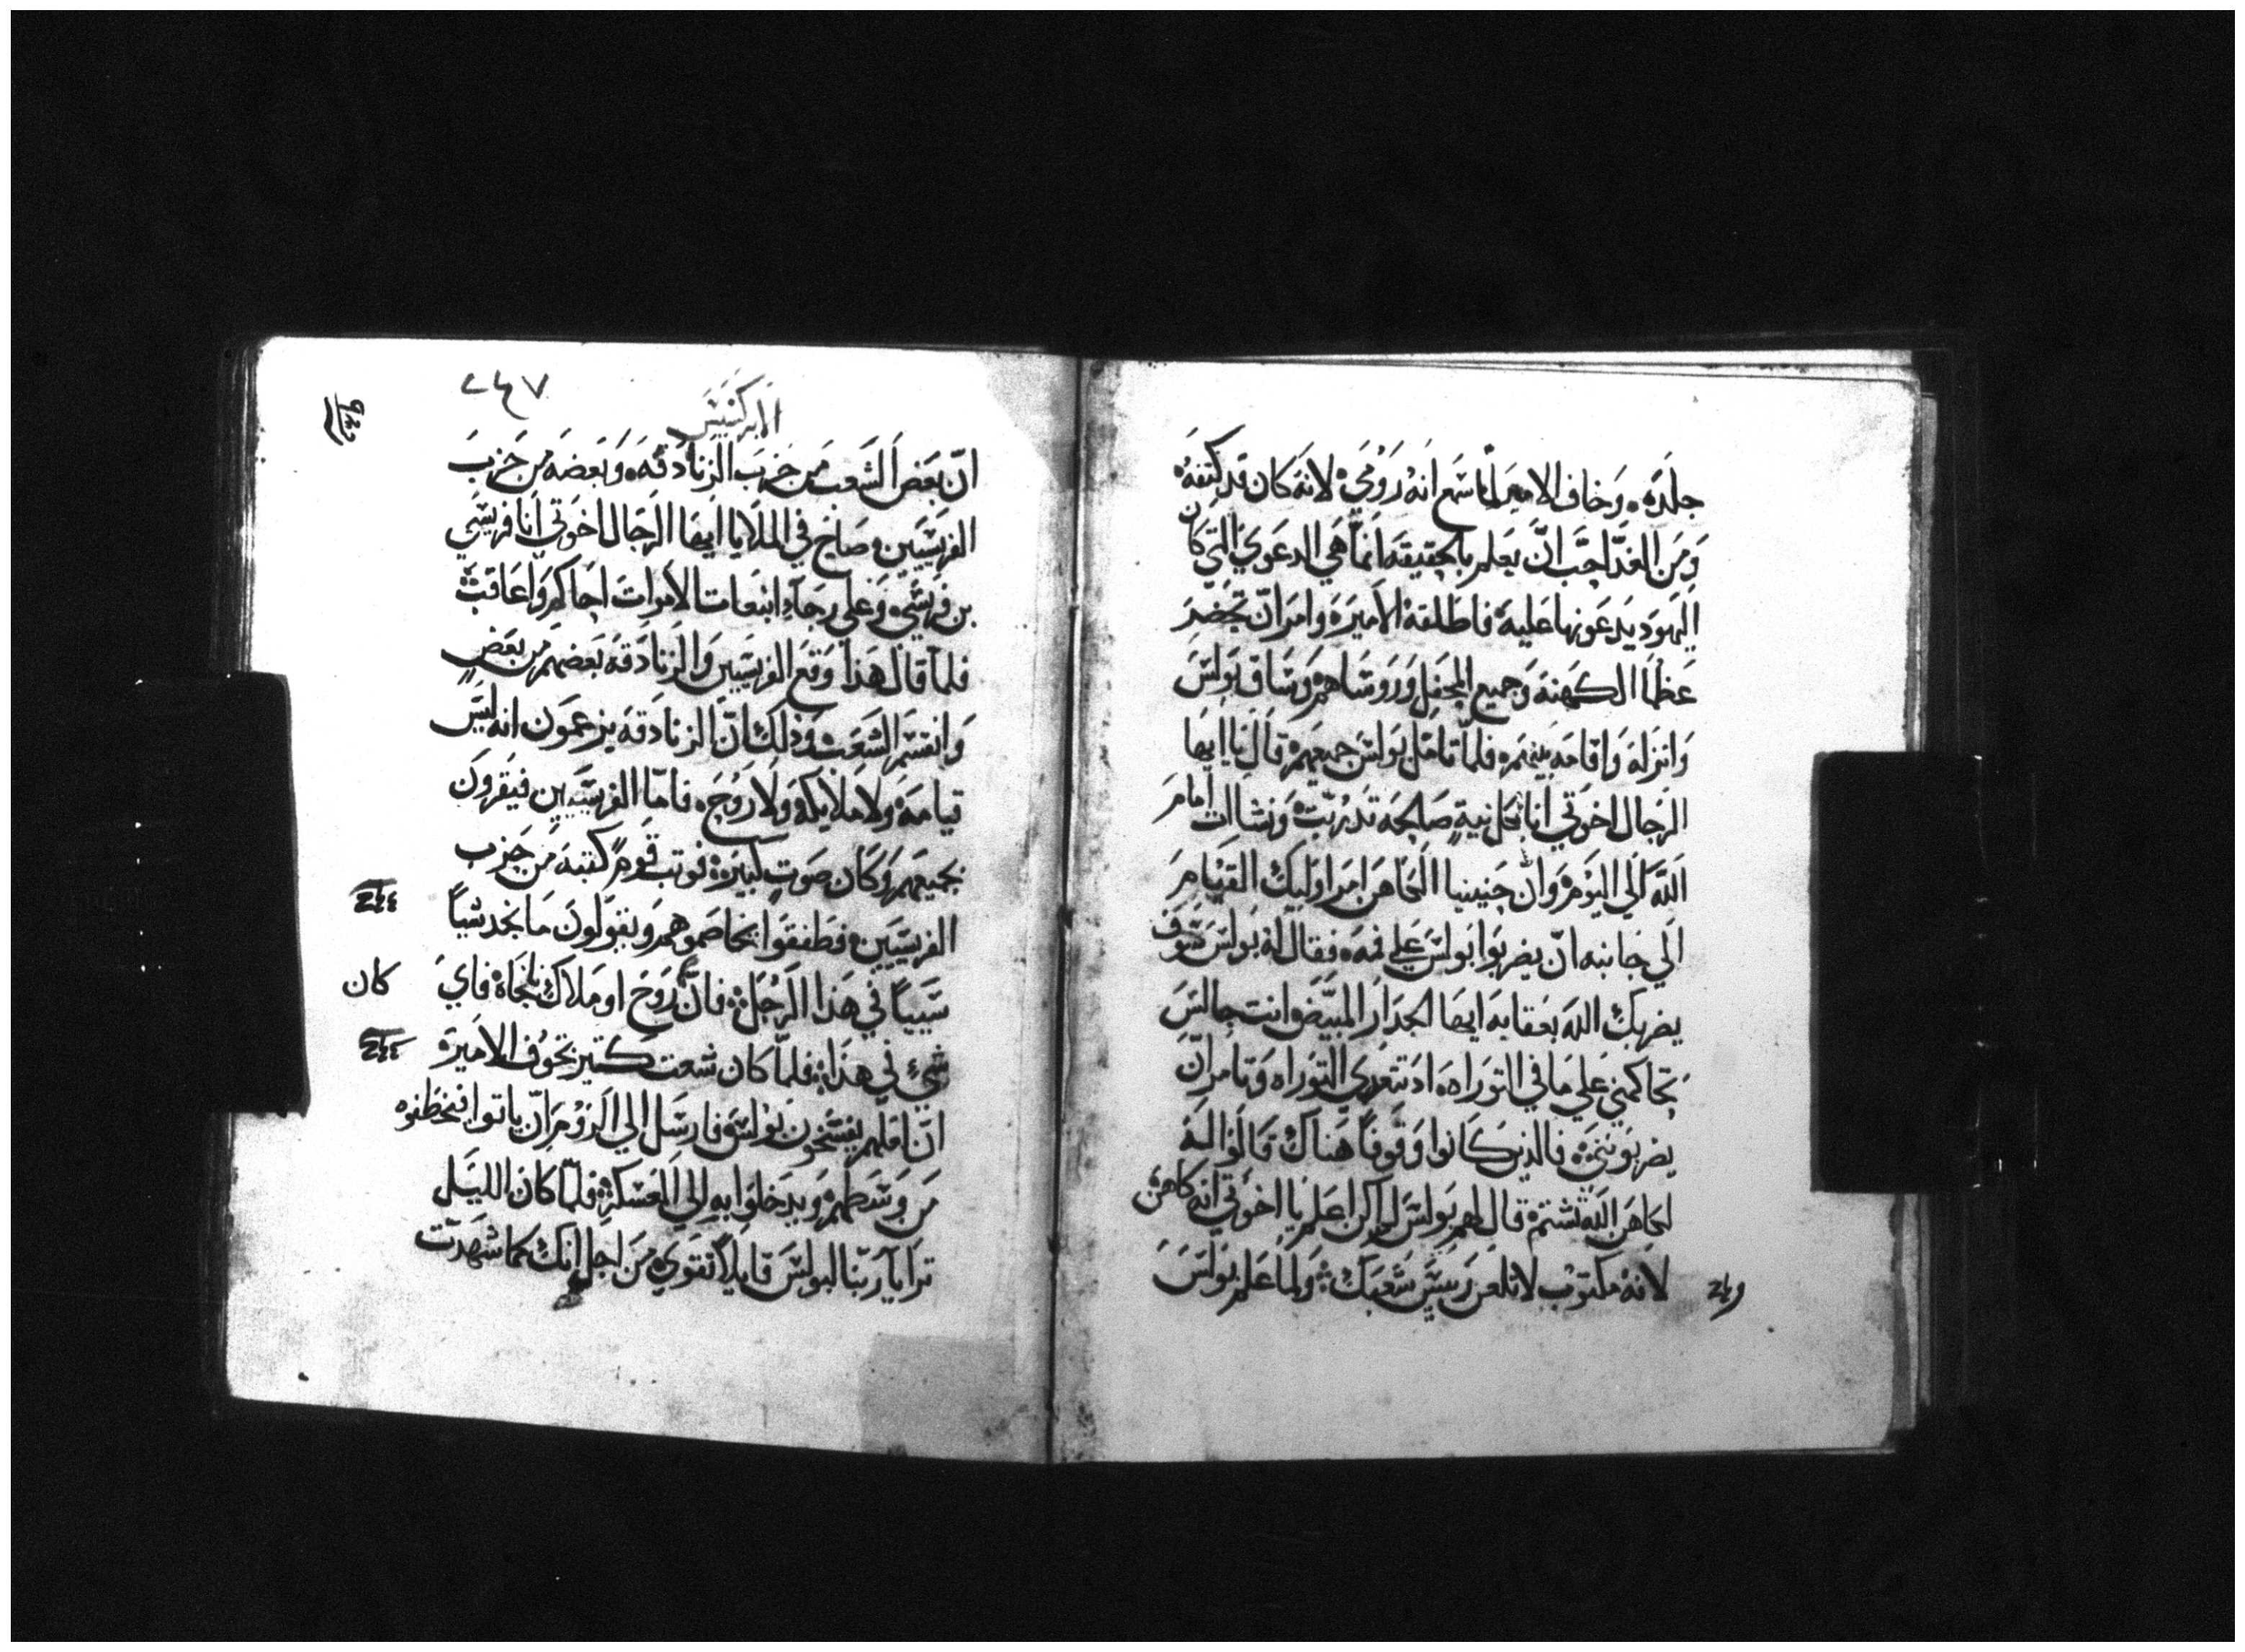 جلده، وخاف الامير لما سمع انه رومي، لانه كان قد كتفه
ومن الغد احب ان يعلم بالحقيقه انما هي الدعوي التي كان
اليهود يدعونها عليه، فاطلقه الامير، وامر ان تحضر
عظما الكهنه وجميع المحفل وروساهم، وساق بولس
وانزله واقامه بينهم، فلما تامل بولس جميعهم، قال يا ايها
الرجال اخوتي انا بكل نية صالحه تدربت، ونشات امام
الله الي اليوم، وان حنينيا الكاهن امر اوليك القيام
الي جانبه ان يضربوا بولس علي فمه، فقال له بولس سوف
يضربك الله بعقابه ايها الجدار المبيض، وانت جالس
تحاكمني علي ما في التوراه، اد تتعدي التوراه وتامر ان
يضربونني، فالدين كانوا وقوفا هناك قالوا له
لكاهن الله تشتم، قال لهم بولس لم اكن اعلم يا اخوتي انه كاهن
لانه مكتوب لا تلعن رييس شعبك، ولما علم بولس
الابركسيس
ان بعض الشعب من حزب الزنادقه، وبعضه من حزب
الفريسيين، صاح في الملا يا ايها الرجال اخوتي انا فريسي
بن فريسي، وعلي رجاء انبعات الاموات احاكم واعاقب
فلما قال هذا وقع الفريسيين والزنادقه بعضهم من بعض
وانقسم الشعب، وذلك ان الزنادقه يزعمون انه ليس
قيامه، ولا ملايكه، ولا روح، فاما الفريسيين فيقرون
بجميعهم، وكان صوت كبير، فوتب قوم كتبه من حزب
الفريسيين، فطفقوا يخاصموهم ويقولون ما نجد شياً
سيياً في هذا الرجل، فان روح او ملاك ناجاه فاي
كان
شيء في هذا، فلما كان شعت كتير تخوف الامير
ان املهم يفسخون بولس، فارسل الي الروم ان ياتوا فيخطفوه
من وسطهم، ويدخلوا به الي العسكر، فلما كان الليل
ترايا ربنا لبولس قايلاً تقوي من اجل انك كما شهدت